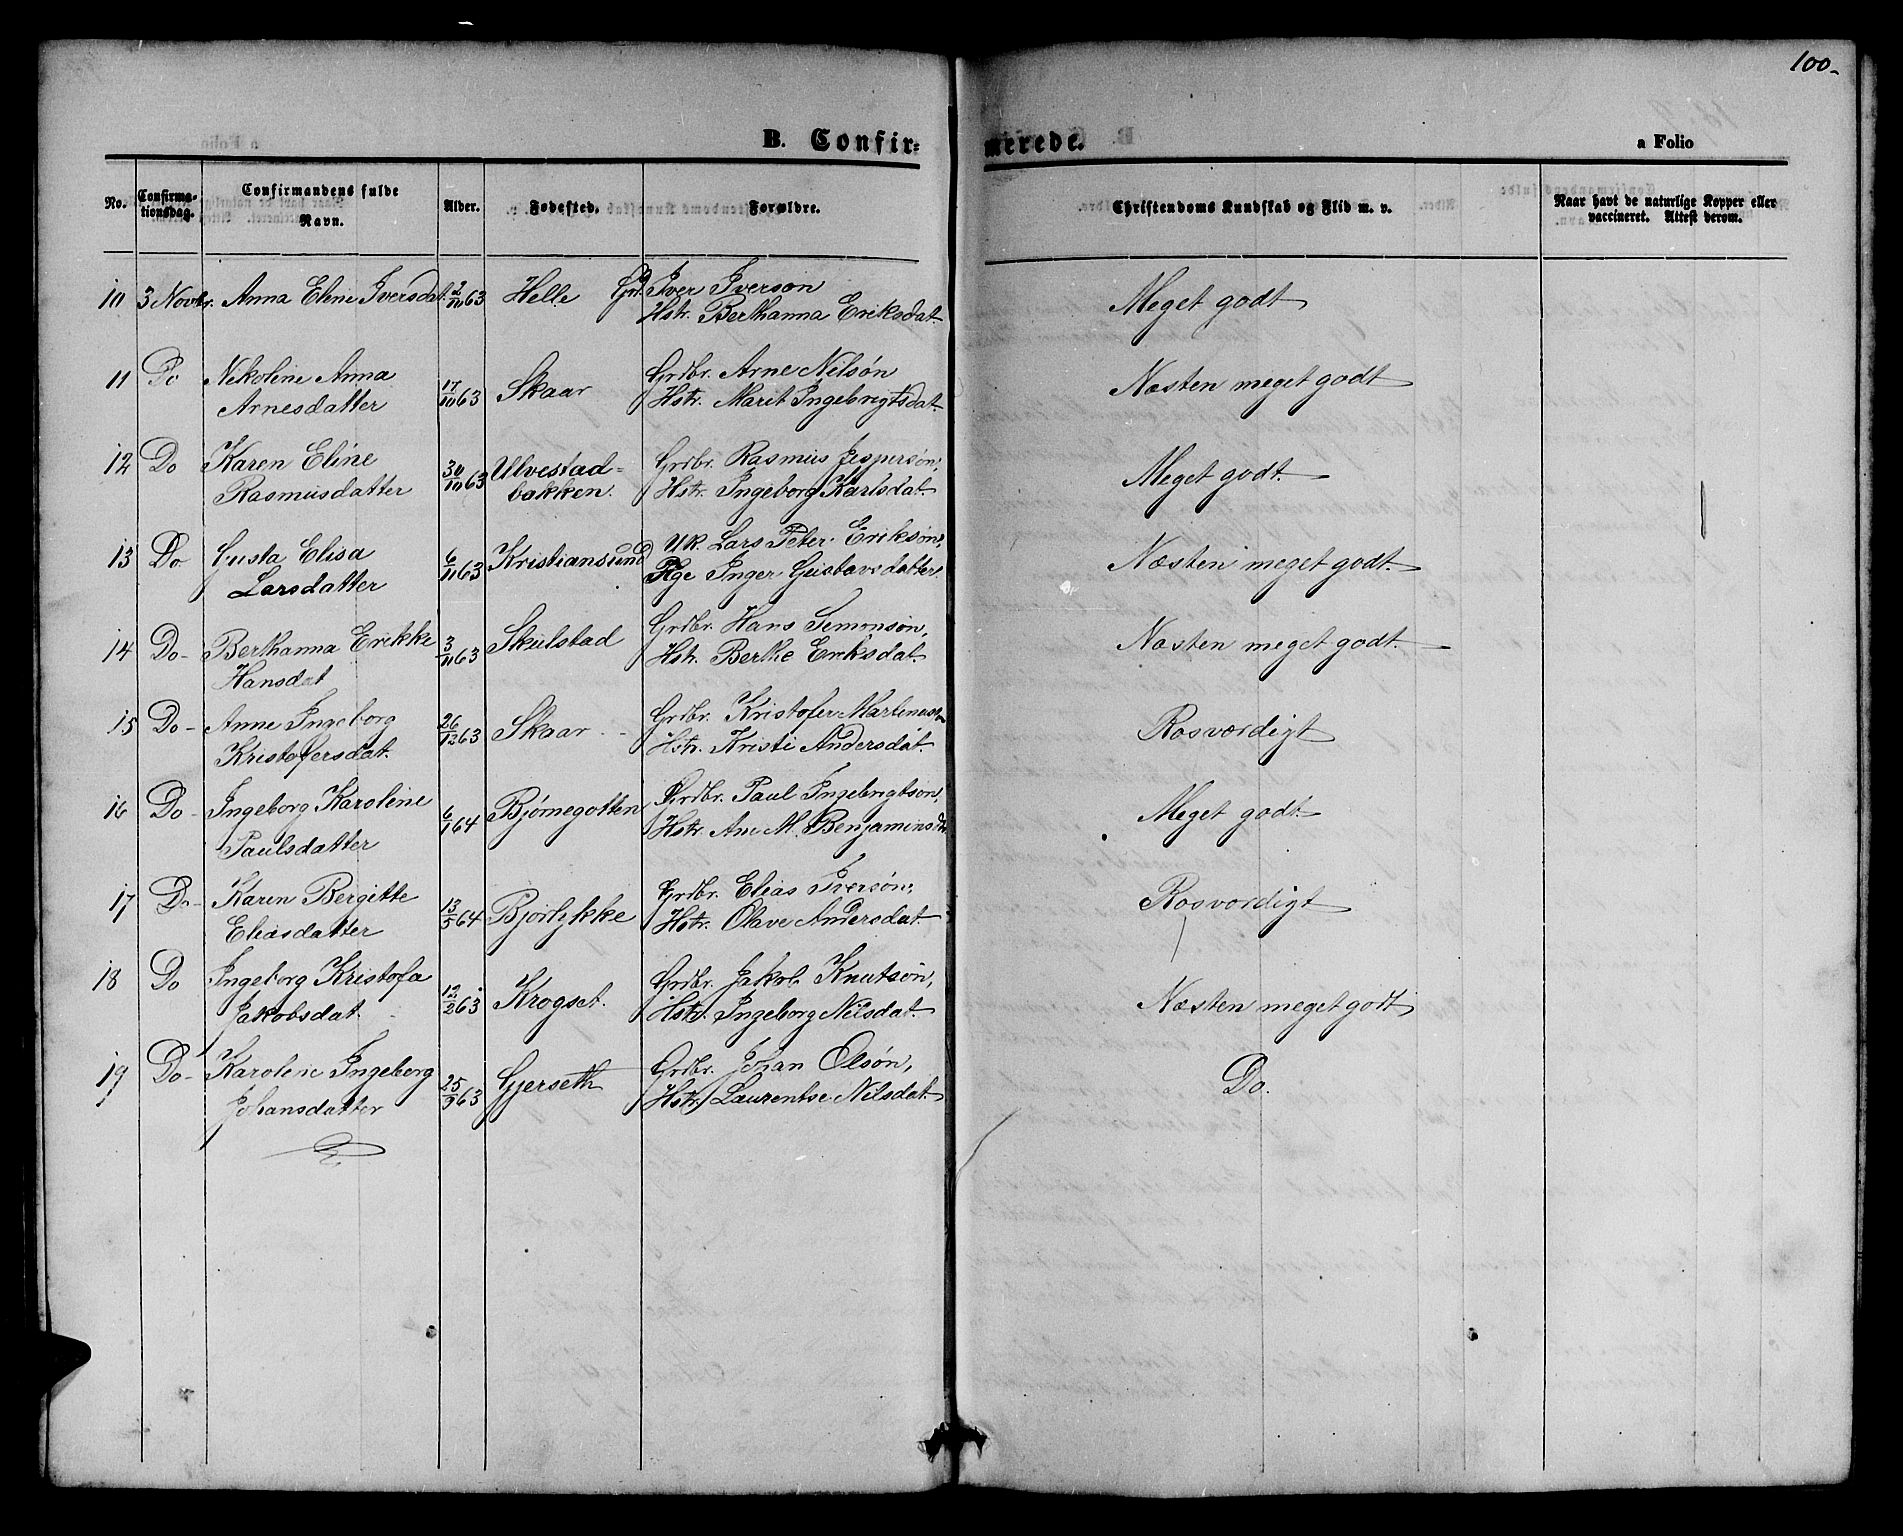 100.
B. Confir-
merede.
a Folio
No.
Confirma-
tionsdag.
Confirmandens fulde
Navn.
Alder.
Fødested.
Forældre.
Christendoms Kundskab og Flid m. v.
Naar havt de naturlige Kopper eller
vaccineret. Attest derom.
10 3 Novbr. Anna Eline Iversdat. 2/10 63 Helle Iver Iverson
Hstr. Berthanna Eriksdat.
Meget godt
11 Do Nikoline Anna
Arnesdatter 17/10 63 Skaar Grdbr. Arne Nilsøn
Hstr. Marit Ingebrigtsdat.
Næsten meget godt
12 Do Karen Eline
Rasmusdatter 30/10 63 Ulvestad-
bakken. Grdbr. Rasmus Jespersøn,
Hstr. Ingeborg Karlsdat.
Meget godt.
13 Do Gusta Elisa
Larsdatter 6/11 63 Kristiansund UK. Lars Peter Eriksøn,
Pige Inger Gustavsdatter.
Næsten meget godt.
14 Do- Berthanna Erikke
Hansdat 3/11 63 Skulstad Grdbr. Hans Simonsøn,
Hstr. Berthe Eriksdat.
Næsten meget godt.
15 Do- Anne Ingeborg
Kristofersdat. 26/12 63 Skaar Grdbr. Kristofer Martinussøn
Hstr. Kristi Andersdat.
Rosværdigt
16 Do- Ingeborg Karoline
Paulsdatter 6/1 64 Bjørnegotten Grdbr. Paul Ingebrigtson,
Hstr. Ane M. Benjaminsdtr
Meget godt
17 Do- Karen Bergitte
Eliasdatter 13/5 64 Bjørlykke Grdbr. Elias Iversøn,
Hstr. Olave Andersdat.
Rosværdigt
18 Do Ingeborg Kristofa
Jakobsdat. 12/2 63 Krogset. Grdbr. Jakob Knutsøn,
Hstr. Ingeborg Nilsdat.
Næsten meget godt
19 Do- Karoline Ingeborg
Johansdatter 25/9 63 Gjerseth Grdbr. Johan Olsøn,
Hstr. Laurentse Nilsdat.
Do.